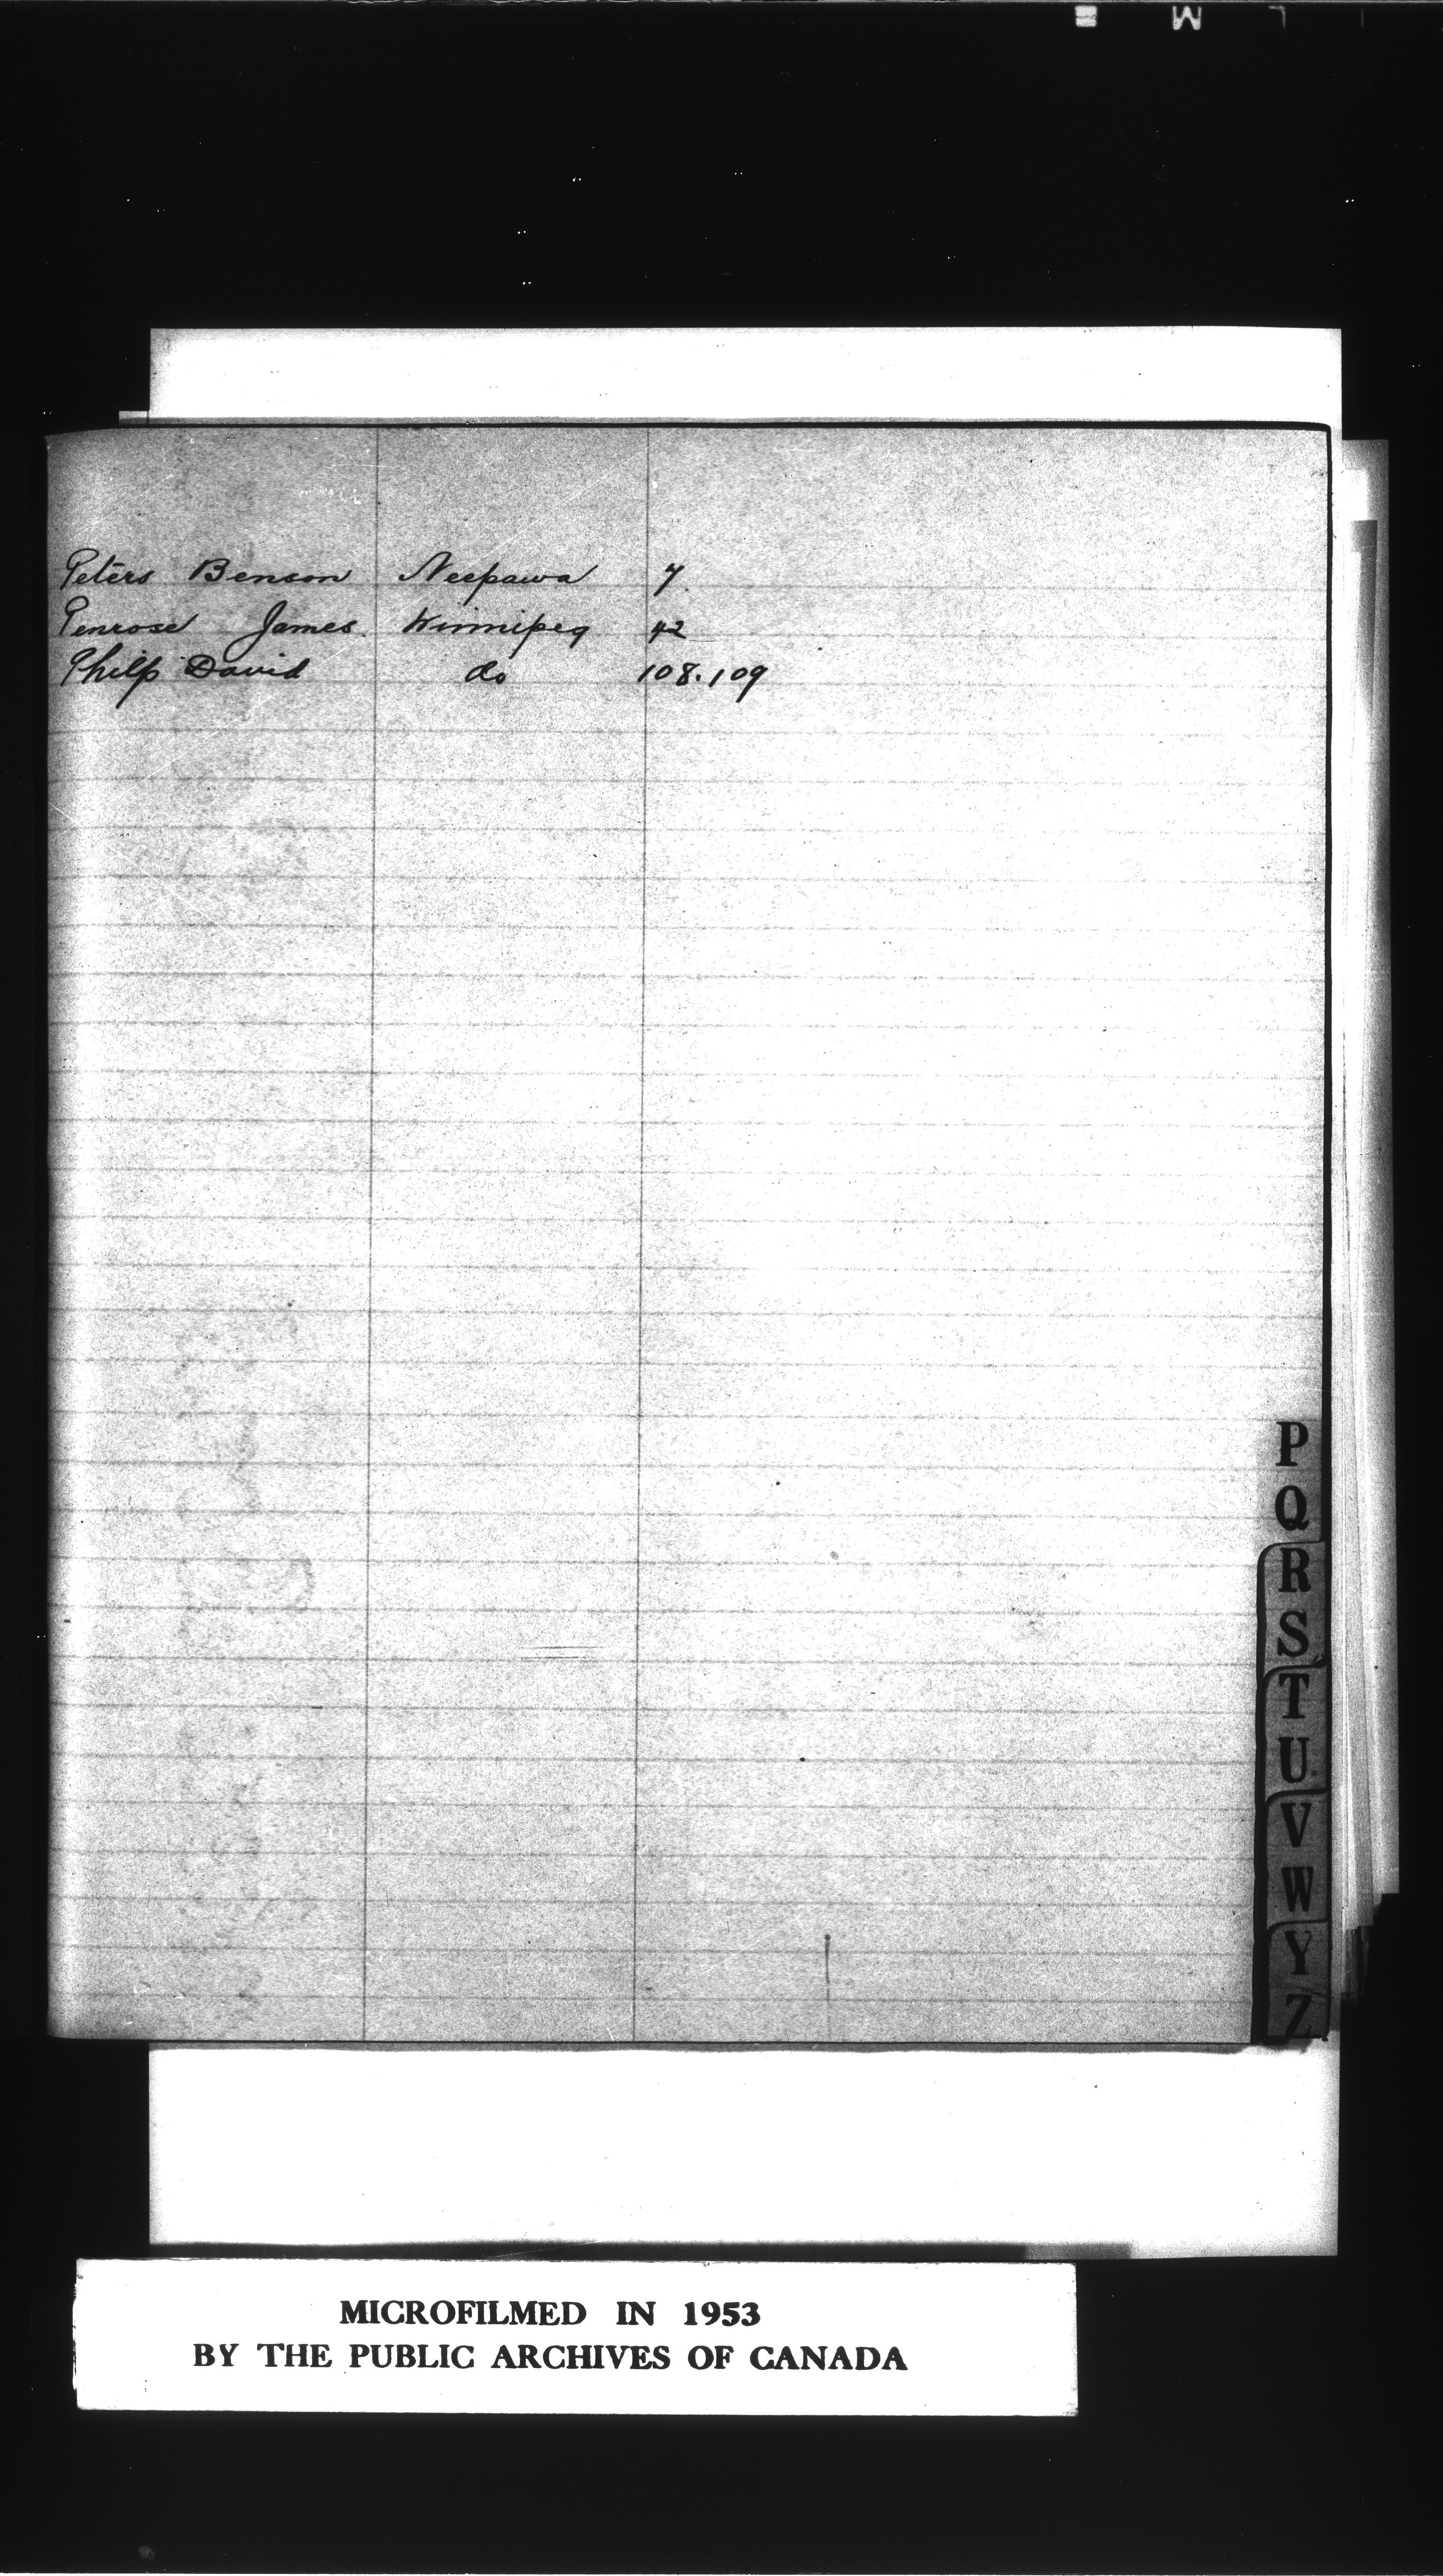 Peters Benson Neepawa 7
Penrose James. Winnipeg 42
Philp David do 108.109
P
Q
R
S
T
U
V
W
Y
Z
MICROFILMED IN 1953
BY THE PUBLIC ARCHIVES OF CANADA